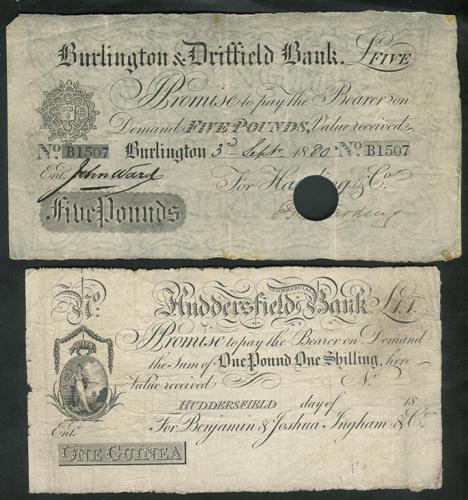 Burlington & Driffield Bank. £FIVE
I Promise to pay the Bearer on
Demand FIVE POUNDS, Value received
No B1507 Burlington 3rd Sept 1880 No B1507
Entd. John Ward For Harding & Co
Five Pounds
COMMERCIAL
No. Huddersfield Bank £1.1.
I Promise to pay the Bearer on Demand
the Sum of One Pound One Shilling, here
Value received No
HUDDERSFIELD day of 18
Entd. For Benjamin & Joshua Ingham & Co
ONE GUINEA